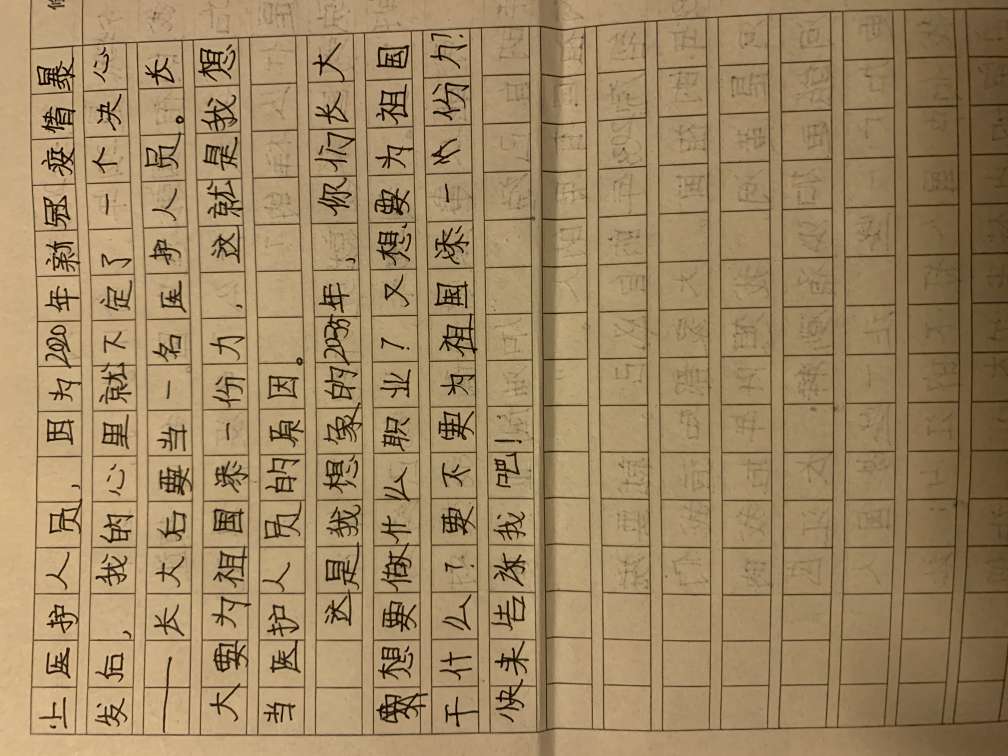 上医护人员，因为2020年新冠疫惜暴
发后，我的心里就下定了一个决心
——长大后要当一名医护人员。长
大要为祖国添一份力，这就是我想
当医护人员的原因。
这是我想象的2035年，你们长大
想要做什么职业？又想要为祖国
干什么？要不要为祖国添一份力？
快来告诉我吧！